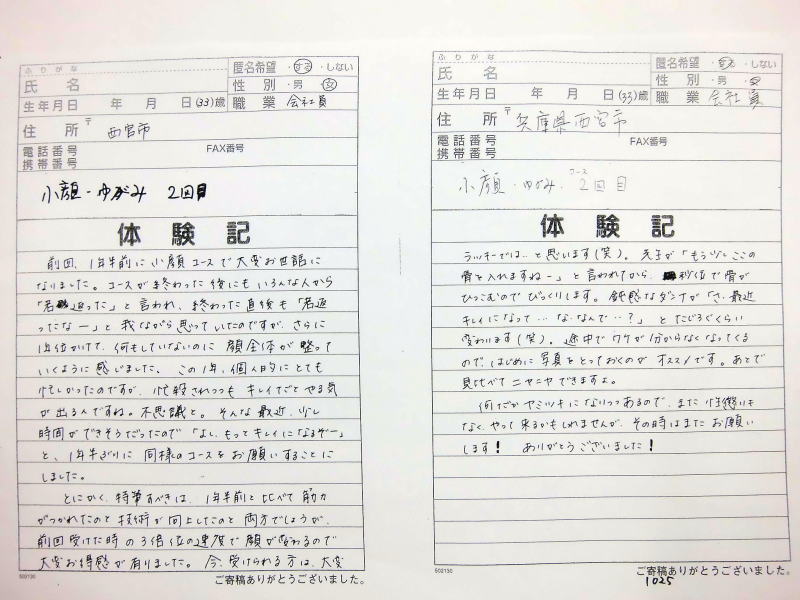 ふりがな
氏 名
匿名希望 ・する・しない
性 別 ・男 ・女
生年月日 年 月 日(33)歳
職 業 会社員
住 所 〒 西宮市
電話番号 FAX番号
携帯番号
小顔・ゆがみ 2回目
体験記
前回、1年半前に小顔コースで大変お世話に
なりました。コースが終わった後にもいろんな人から
「若返った」と言われ、終わった直後も「若返
ったなー」と我ながら思っていたのですが、さらに
1年位かけて、何もしていないのに顔全体が整って
いくように感じました。この1年、個人的にとても
忙しかったのですが、忙殺されつつもキレイだとやる気
が出るんですね。不思議と。そんな最近、少し
時間ができそうだったので「よし、もっとキレイになるぞー」
と、1年半ぶりに同様のコースをお願いすることに
しました。
とにかく、特筆すべきは、1年半前と比べて筋力
がつかれたのと技術が向上したのと両方でしょうが、
前回受けた時の3倍位の速度で顔が変わるので
大変お得感が有りました。今、受けられる方は、大変
502130
ご寄稿ありがとうございました。
ふりがな
氏 名
匿名希望 ・する・しない
性 別 ・男 ・女
生年月日 年 月 日(33)歳
職 業 会社員
住 所 〒 兵庫県西宮市
電話番号 FAX番号
携帯番号
小顔・ゆがみ コース 2回目
体験記
ラッキーでは…と思います(笑)。先生が「もう少しここの
骨を入れますねー」と言われてから、秒位で骨が
ひっこむのでびっくりします。鈍感なダンナが「さ、最近
キレイになって…な、なんで…？」とたじろぐくらい
変わります(笑)。途中でワケが分からなくなってくる
ので、はじめに写真をとっておくのがオススメです。あとで
見比べてニヤニヤできますよ。
何だかヤミツキになりつつあるので、また性懲りも
なくやって来るかもしれませんが、その時はまたお願い
します！ ありがとうございました！
502130
ご寄稿ありがとうございました。
1025